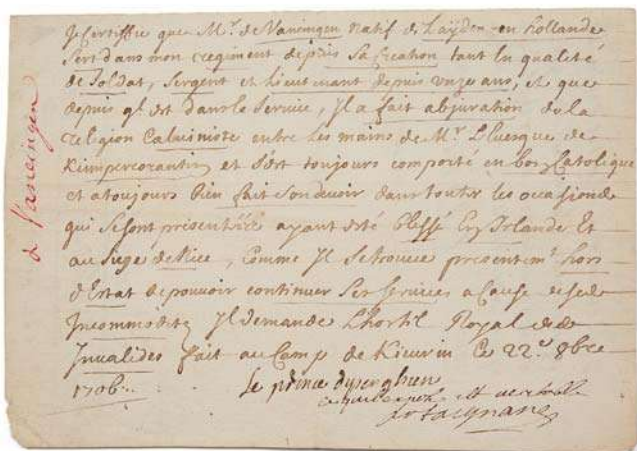 Je Certiffie que Mr. de Vaneingen natif de Layden en hollande
sert dans mon regiment depuis sa creation tant en qualité
de Soldat, Sergent et Lieutenant depuis onze ans, et que
depuis ql est dans le service, Jl a fait abjuration de la
religion Caluiniste entre les mains de Mr. L'Euesque de
Kimpercorantin et s'est toujours comporté en bon Catolique
et a toujours bien fait son devoir dans toutes les occasions
qui se sont presentées ayant esté blessé En Irlande Et
au siege de Nice, Comme Jl se trouve presentemt. hors
d'Estat de pouvoir continuer ses services a Cause de ses
Incommodités Jl demande L'hostil Royal des
Invalides fait au Camp de Kieurin Ce 22e. 8bre
1706.
Le prince d'Isenghien
et
de Vaneingen